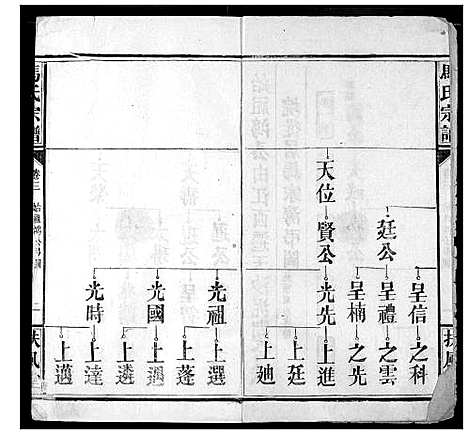 馬氏宗譜
廷公
呈信
之科
呈禮
之雲
呈楠
之先
天位
賢公
光先
上進
上廷
上廸
光祖
上選
上蓬
光國
上遇
上遴
光時
上達
上邁
馬氏宗譜
卷三
二
扶風
扶風